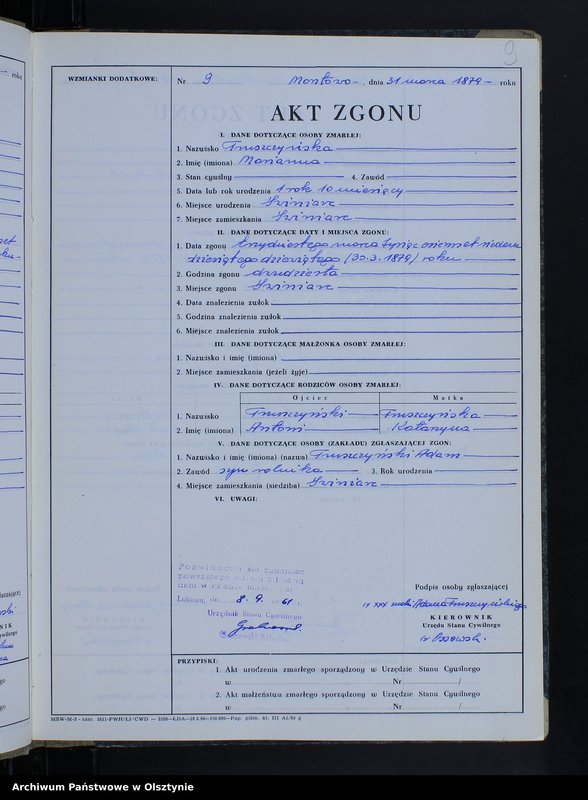 9
WZMIANKI DODATKOWE:
Nr 9 Montowo, dnia 31 marca 1879 roku
AKT ZGONU
I. DANE DOTYCZĄCE OSOBY ZMARŁEJ:
1. Nazwisko Truszczyńska
2. Imię (imiona) Marianna
3. Stan cywilny 4. Zawód
5. Data lub rok urodzenia 1 rok 10 miesięcy
6. Miejsce urodzenia Szwiniarc
7. Miejsce zamieszkania Szwiniarc
II. DANE DOTYCZĄCE DATY I MIEJSCA ZGONU:
1. Data zgonu trzydziestego marca tysiąc osiemset siedem
dziesiątego dziewiątego (30.3.1879) roku
2. Godzina zgonu dwudziesta
3. Miejsce zgonu Szwiniarc
4. Data znalezienia zwłok
5. Godzina znalezienia zwłok
6. Miejsce znalezienia zwłok
III. DANE DOTYCZĄCE MAŁŻONKA OSOBY ZMARŁEJ:
1. Nazwisko i imię (imiona)
2. Miejsce zamieszkania (jeżeli żyje)
IV. DANE DOTYCZĄCE RODZICÓW OSOBY ZMARŁEJ:
Ojciec Matka
1. Nazwisko Truszczyński Truszczyńska
2. Imię (imiona) Antoni Katarzyna
V. DANE DOTYCZĄCE OSOBY (ZAKŁADU) ZGŁASZAJĄCEJ ZGON:
1. Nazwisko i imię (imiona) (nazwa) Truszczyński Adam
2. Zawód syn rolnika 3. Rok urodzenia
4. Miejsce zamieszkania (siedziba) Szwiniarc
VI. UWAGI:
Poświadcza się zgodność
powyższego odpisu z treścią
aktu w księdze
Lubawa, dn. 8.9.1961 r.
Urzędnik Stanu Cywilnego
Podpis osoby zgłaszającej
xxx znaki Adama Truszczyńskiego
KIEROWNIK
Urzędu Stanu Cywilnego
Ossowski
PRZYPISKI:
1. Akt urodzenia zmarłego sporządzony w Urzędzie Stanu Cywilnego
w Nr /
2. Akt małżeństwa zmarłego sporządzony w Urzędzie Stanu Cywilnego
w Nr /
Archiwum Państwowe w Olsztynie